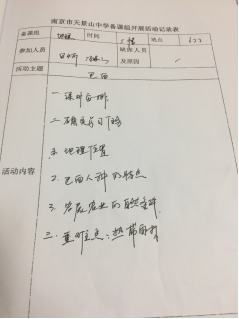 南京市天景山中学备课组开展活动记录表
备课组 地理 时间 地点 622
参加人员 缺席人员及原因
活动主题 巴西
活动内容
一 课时安排
二 确定学习目标
1. 地理位置
2. 巴西人种的特点
3. 发展农业的自然条件
三. 重难点：热带雨林